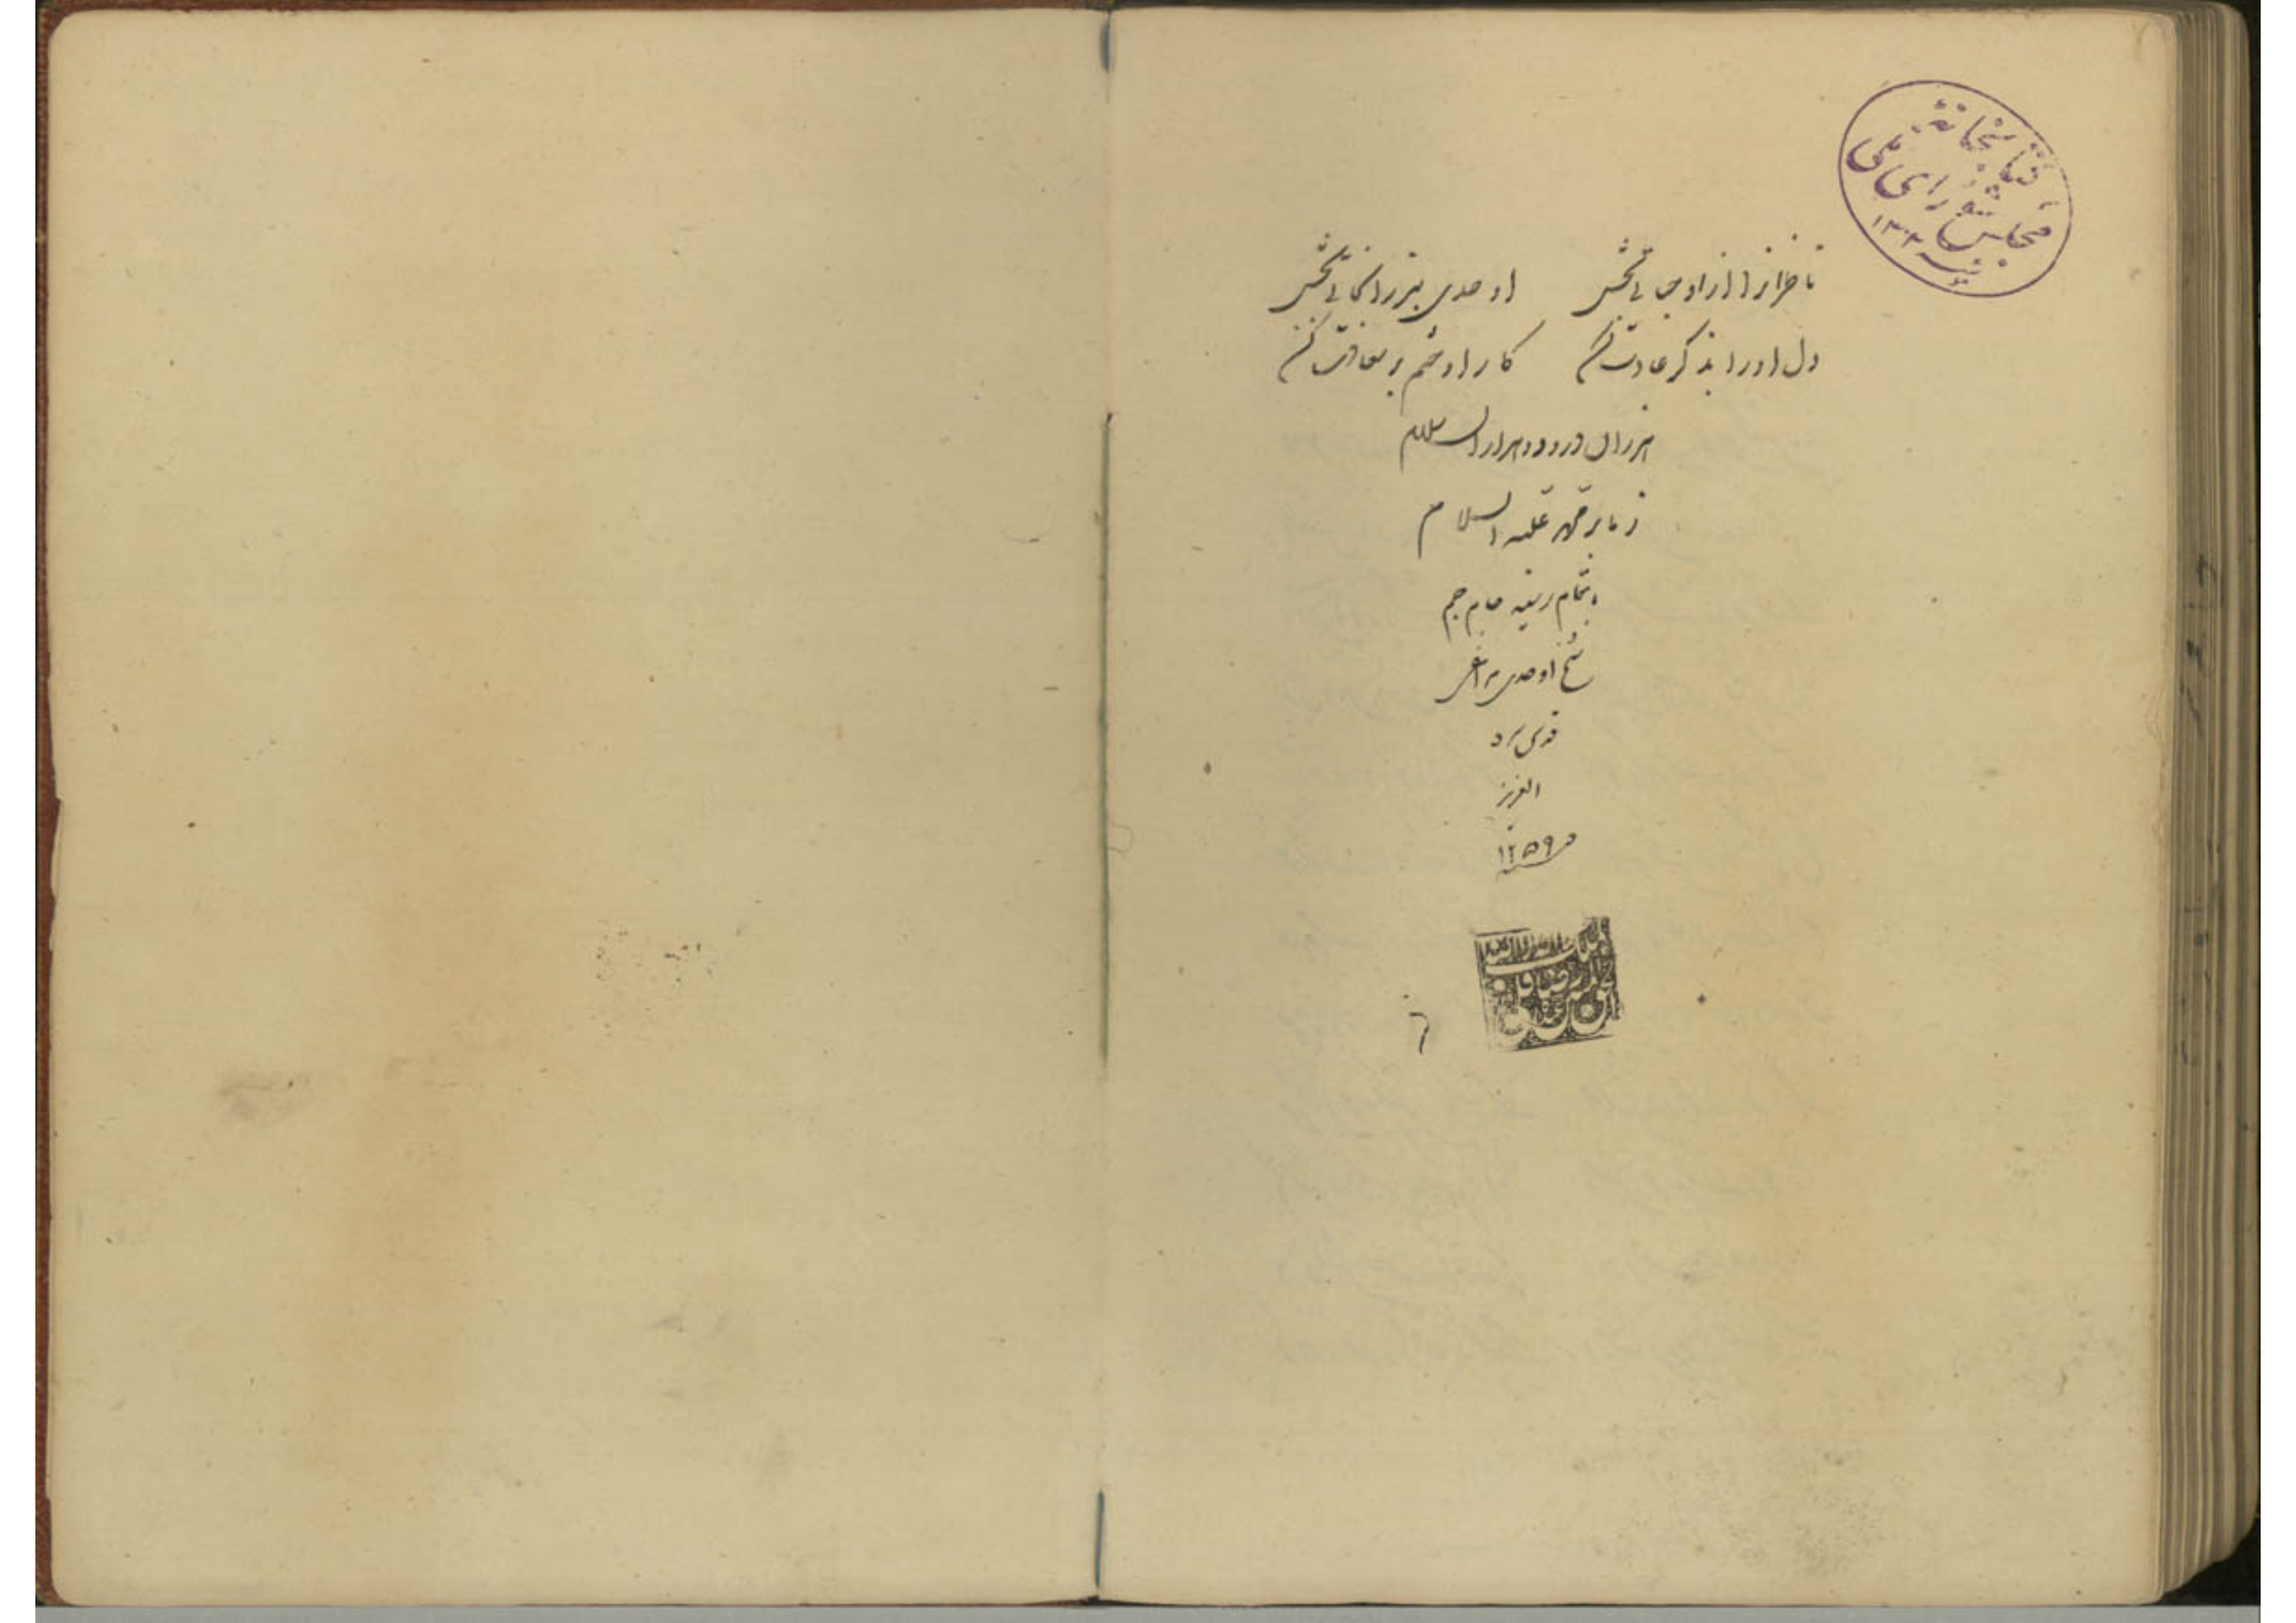 کتابخانهٔ
مجلس شورای ملی
۱۳۰۲
ناظرانرا ازاو جمالی بخش اوحدی نیز را کمالی بخش
دل اورا بذکر عادت کن کار او ختم بر سعادت کن
هزاران درود و هزاران سلام
ز ما بر محمد علیه السلام
باتمام رسید جام جم
شیخ اوحدی مراغی
قدس سره
العزیز
فی سنه ۱۲۵۹